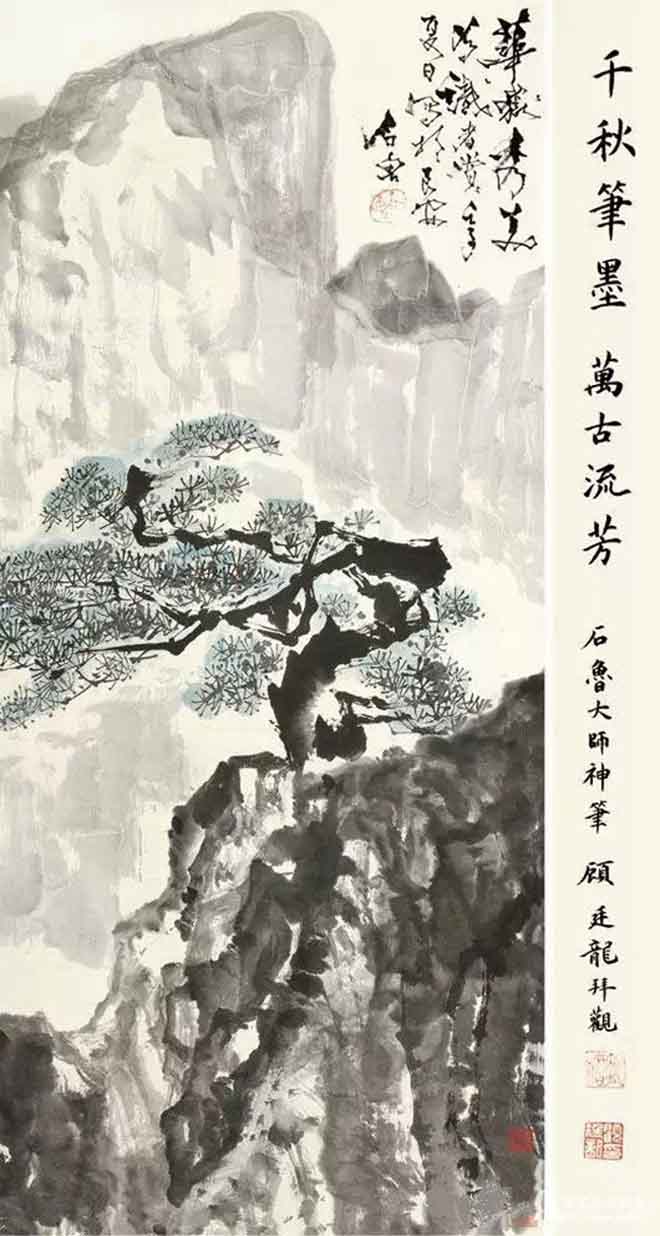 千秋筆墨 萬古流芳 石魯大師神筆 顧廷龍拜觀
華嶽美
識者賞
夏日寫於長安
石魯